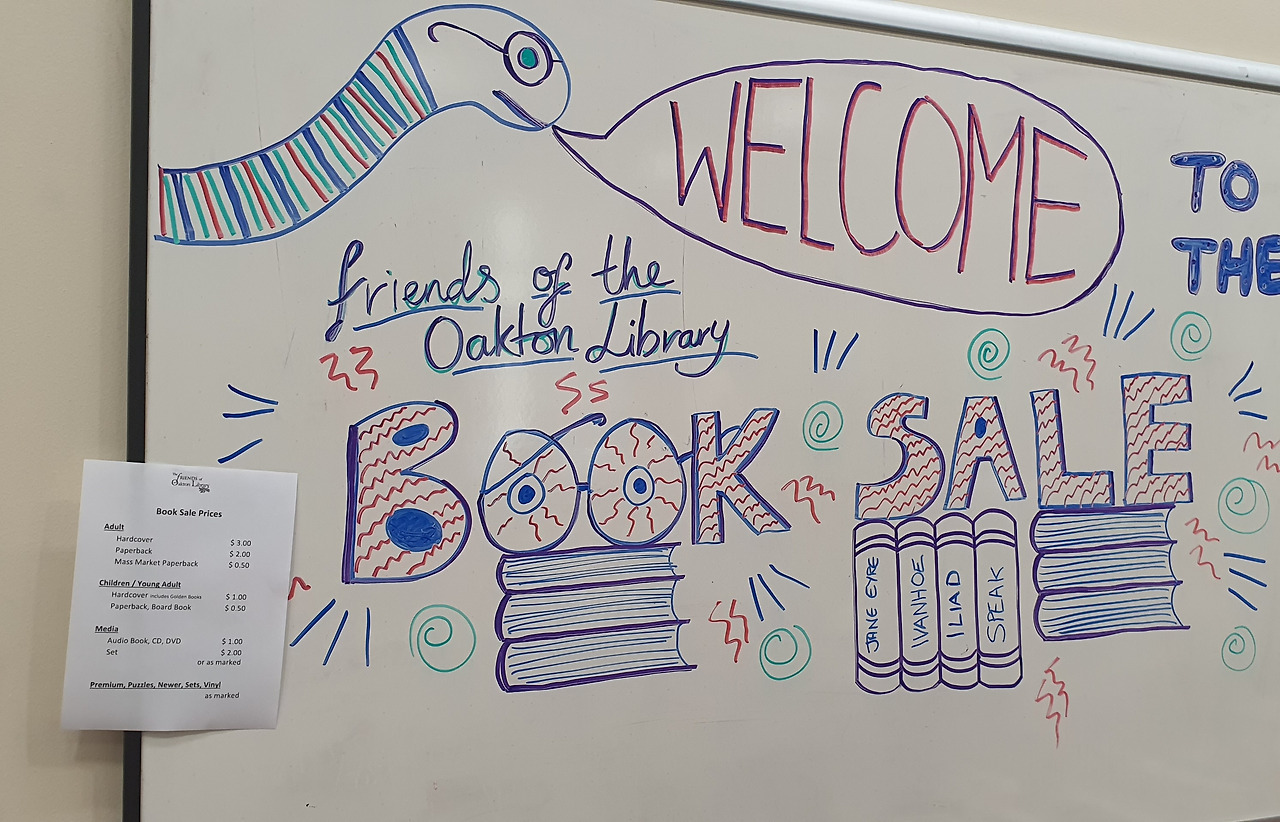 WELCOME
TO
THE
friends of the
Oakton Library
BOOK SALE
JANE EYRE
IVANHOE
ILIAD
SPEAK
The FRIENDS of
Oakton Library
Book Sale Prices
Adult
Hardcover $ 3.00
Paperback $ 2.00
Mass Market Paperback $ 0.50
Children / Young Adult
Hardcover includes Golden Books $ 1.00
Paperback, Board Book $ 0.50
Media
Audio Book, CD, DVD $ 1.00
Set $ 2.00
or as marked
Premium, Puzzles, Newer, Sets, Vinyl
as marked